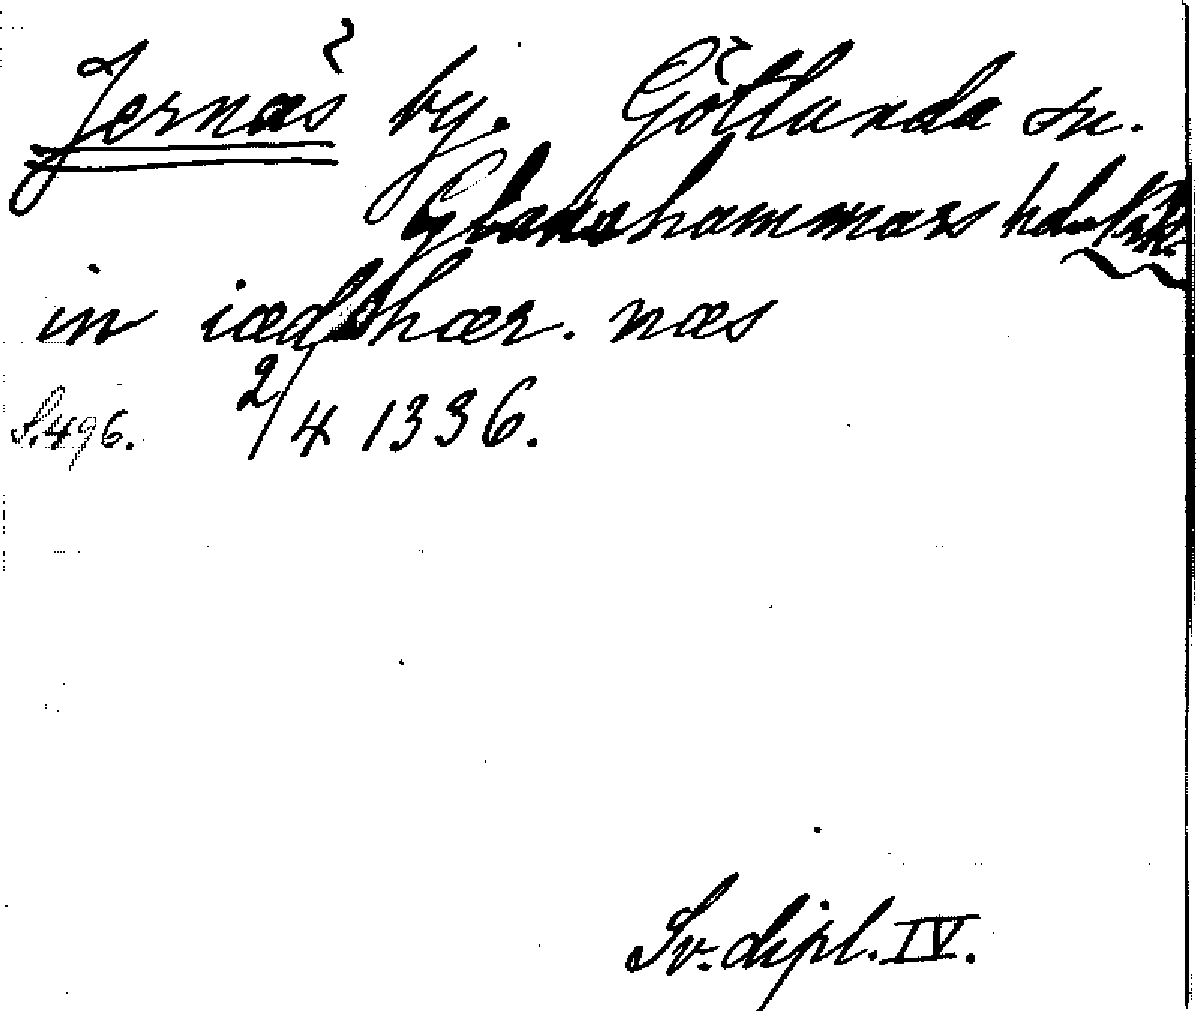 Jernäs by. Götlunda sn.
Glanshammars hd.
in iædhær. næs
S. 496. 2/4 1336.
Sv. dipl. IV.